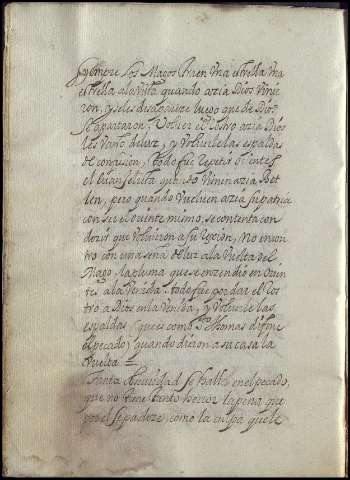 siempre los Magos tienen una estrella una
estrella a la Vista quando azia Dios Vinie
ron, y se les desapareze luego que de Dios
se apartaron, Volver el rostro azia Dios
les vano de luz, y Volverle las espaldas
de confusion, todo fue repetir oientes
el Euangelista quando Vinen azia Bet
len, pero quando Vuelven azia su patria
con ser el oriente mismo, se contenta con
dezir que Volvieron a su Region, No encon
tro con una seña de luz a la Vuelta del
Mago, la pluma que se enzendio en Orien
tes a la Venida todo fue por dar el Ros
tro a Dios en la Venida, y Volverle las
espaldas (que es como S. Thomas difine
el pecado) quando dieron a su casa la
Vuelta =
Tanta atrocidad se halla en el pecado,
que no tiene tanto horror la pena que
por el se padeze, como la culpa que le